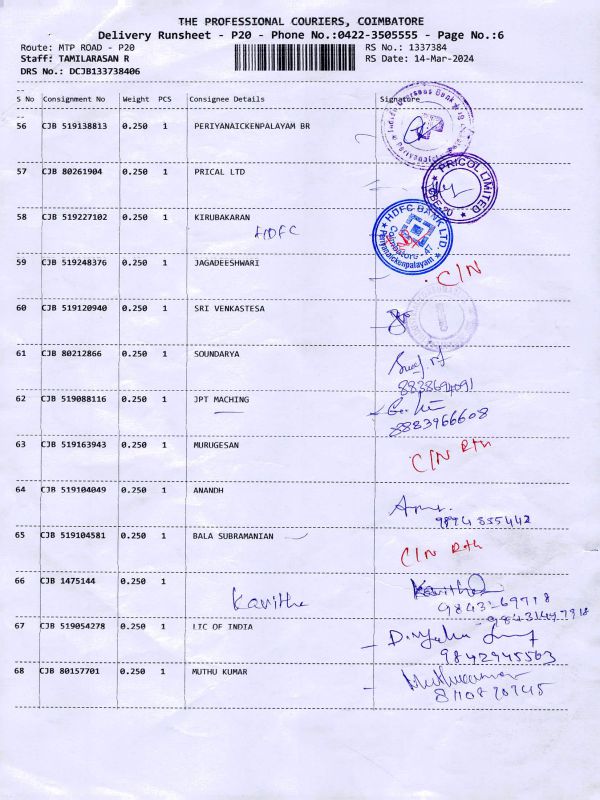 THE PROFESSIONAL COURIERS, COIMBATORE
Delivery Runsheet - P20 - Phone No.:0422-3505555 - Page No.:6
Route: MTP ROAD - P20 RS No.: 1337384
Staff: TAMILARASAN R RS Date: 14-Mar-2024
DRS No.: DCJB133738406
S No Consignment No Weight PCS Consignee Details Signature
56 CJB 519138813 0.250 1 PERIYANAICKENPALAYAM BR
57 CJB 80261904 0.250 1 PRICAL LTD
PRICOL LIMITED
58 CJB 519227102 0.250 1 KIRUBAKARAN
HDFC
HDFC BANK LTD
Periyanaickenpalayam
Coimbatore - 47
59 CJB 519248376 0.250 1 JAGADEESHWARI C/N
60 CJB 519120940 0.250 1 SRI VENKASTESA
61 CJB 80212866 0.250 1 SOUNDARYA
8838694091
62 CJB 519088116 0.250 1 JPT MACHING
8883966608
63 CJB 519163943 0.250 1 MURUGESAN C/N Rtn
64 CJB 519104049 0.250 1 ANANDH
9894355442
65 CJB 519104581 0.250 1 BALA SUBRAMANIAN C/N Rtn
66 CJB 1475144 0.250 1
Kavitha Kavitha
67 CJB 519054278 0.250 1 LIC OF INDIA
9842945563
68 CJB 80157701 0.250 1 MUTHU KUMAR Muthukumar